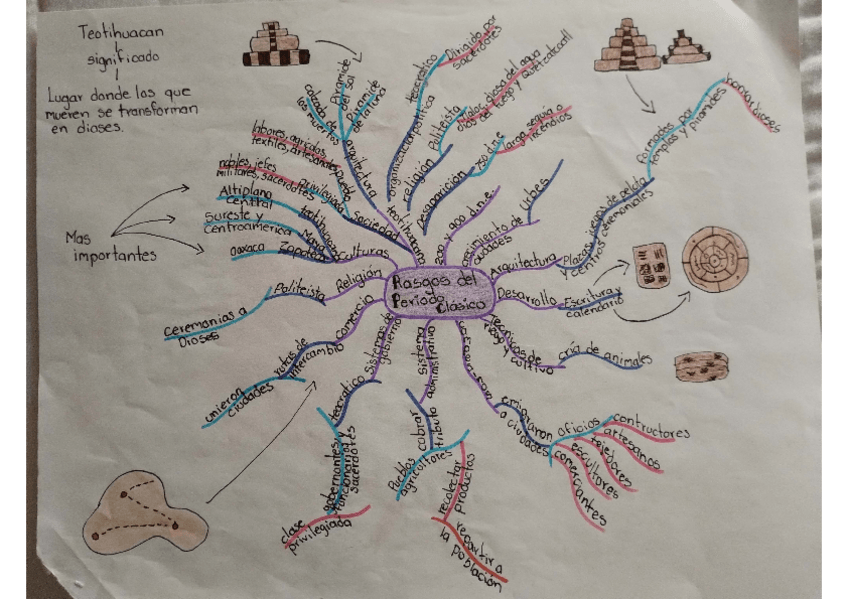 Teotihuacan
significado
Lugar donde los que
mueren se transforman
en dioses.
Mas
importantes
Rasgos del
Período
Clásico
teotihuacana
arquitectura
calzada de
los muertos
Pirámide
del sol
Pirámide
de la luna
organización política
teocratico
Dirigida por
sacerdotes
religión
Politeista
tlaloc, diosa del agua
dios del fuego y quetzalcoatl
Desaparición
750 d.n.e
larga sequia o
incendios
sociedad
pueblo
labores, agricolas
textiles, artesanales
privilegiada
nobles, jefes
militares, sacerdotes
culturas
teotihuacana
Altiplano
Central
Maya
Sureste y
Centroamerica
Zapoteca
oaxaca
Religión
Politeista
ceremonias a
Dioses
comercio
rutas de
intercambio
unieron
ciudades
sistemas de
gobierno
teocratico
gobernantes y
funcionarios
sacerdotes
clase
privilegiada
sistema
administrativo
cobrar
tributo
Pueblos
agricultores
recolectar
productos
repartir a
la población
emigraron
a ciudades
oficios
contructores
artesanos
tejedores
escultores
comerciantes
tecnicas de
riego y cultivo
cría de animales
Desarrollo
Escritura y
calendario
Arquitectura
Plazas, juego de pelota
y centros ceremoniales
formadas por
templos y piramides
crecimiento de
ciudades
Urbes
200 y 900 d.n.e